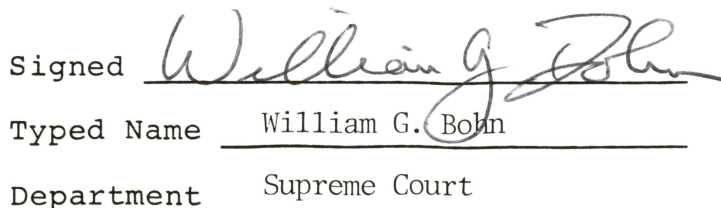 Signed William G Bohn
Typed Name William G. Bohn
Department Supreme Court